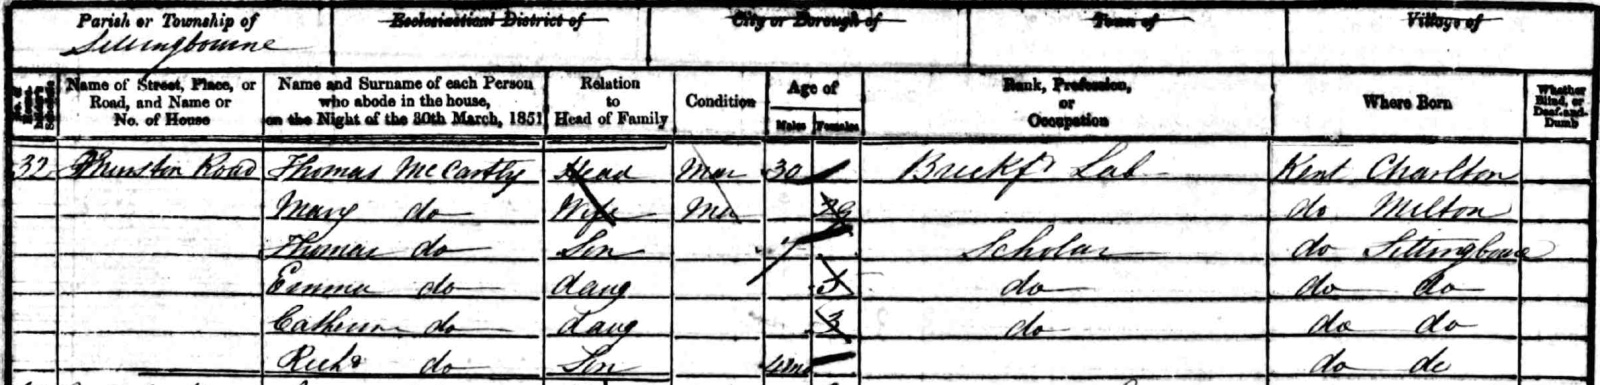 Parish or Township of Ecclesiastical District of City or Borough of Town of Village of
Sittingbourne
Name of Street, Place, or Road, and Name or No. of House Name and Surname of each Person who abode in the house, on the Night of the 30th March, 1851 Relation to Head of Family Condition Age of Males Females Rank, Profession, or Occupation Where Born Whether Blind, or Deaf-and-Dumb
32 Road Thomas McCartly Head Mar 30 Brickfd Lab Kent Charlton
Mary do Wife Mar 29 do Milton
Thomas do Son 7 Scholar do Sittingbourne
Emma do daug 5 do do do
Catherine do daug 3 do do do
Richd do Son 4m do do